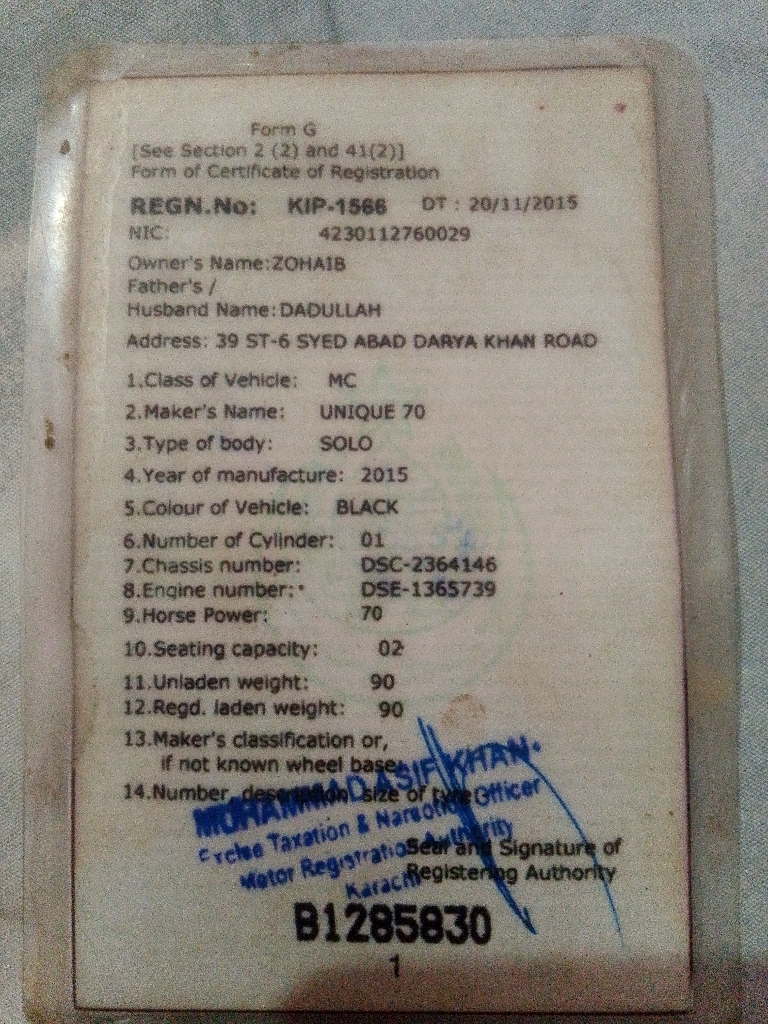 Form G
[See Section 2 (2) and 41(2)]
Form of Certificate of Registration
REGN.No: KIP-1566 DT : 20/11/2015
NIC: 4230112760029
Owner's Name:ZOHAIB
Father's /
Husband Name:DADULLAH
Address: 39 ST-6 SYED ABAD DARYA KHAN ROAD
1.Class of Vehicle: MC
2.Maker's Name: UNIQUE 70
3.Type of body: SOLO
4.Year of manufacture: 2015
5.Colour of Vehicle: BLACK
6.Number of Cylinder: 01
7.Chassis number: DSC-2364146
8.Engine number: DSE-1365739
9.Horse Power: 70
10.Seating capacity: 02
11.Unladen weight: 90
12.Regd. laden weight: 90
13.Maker's classification or,
if not known wheel base
14.Number, size of
MUHAMMAD ASIF KHAN
Excise Taxation & Narcotics Officer
Motor Registration Authority
Karachi
Seal and Signature of
Registering Authority
B1285830
1